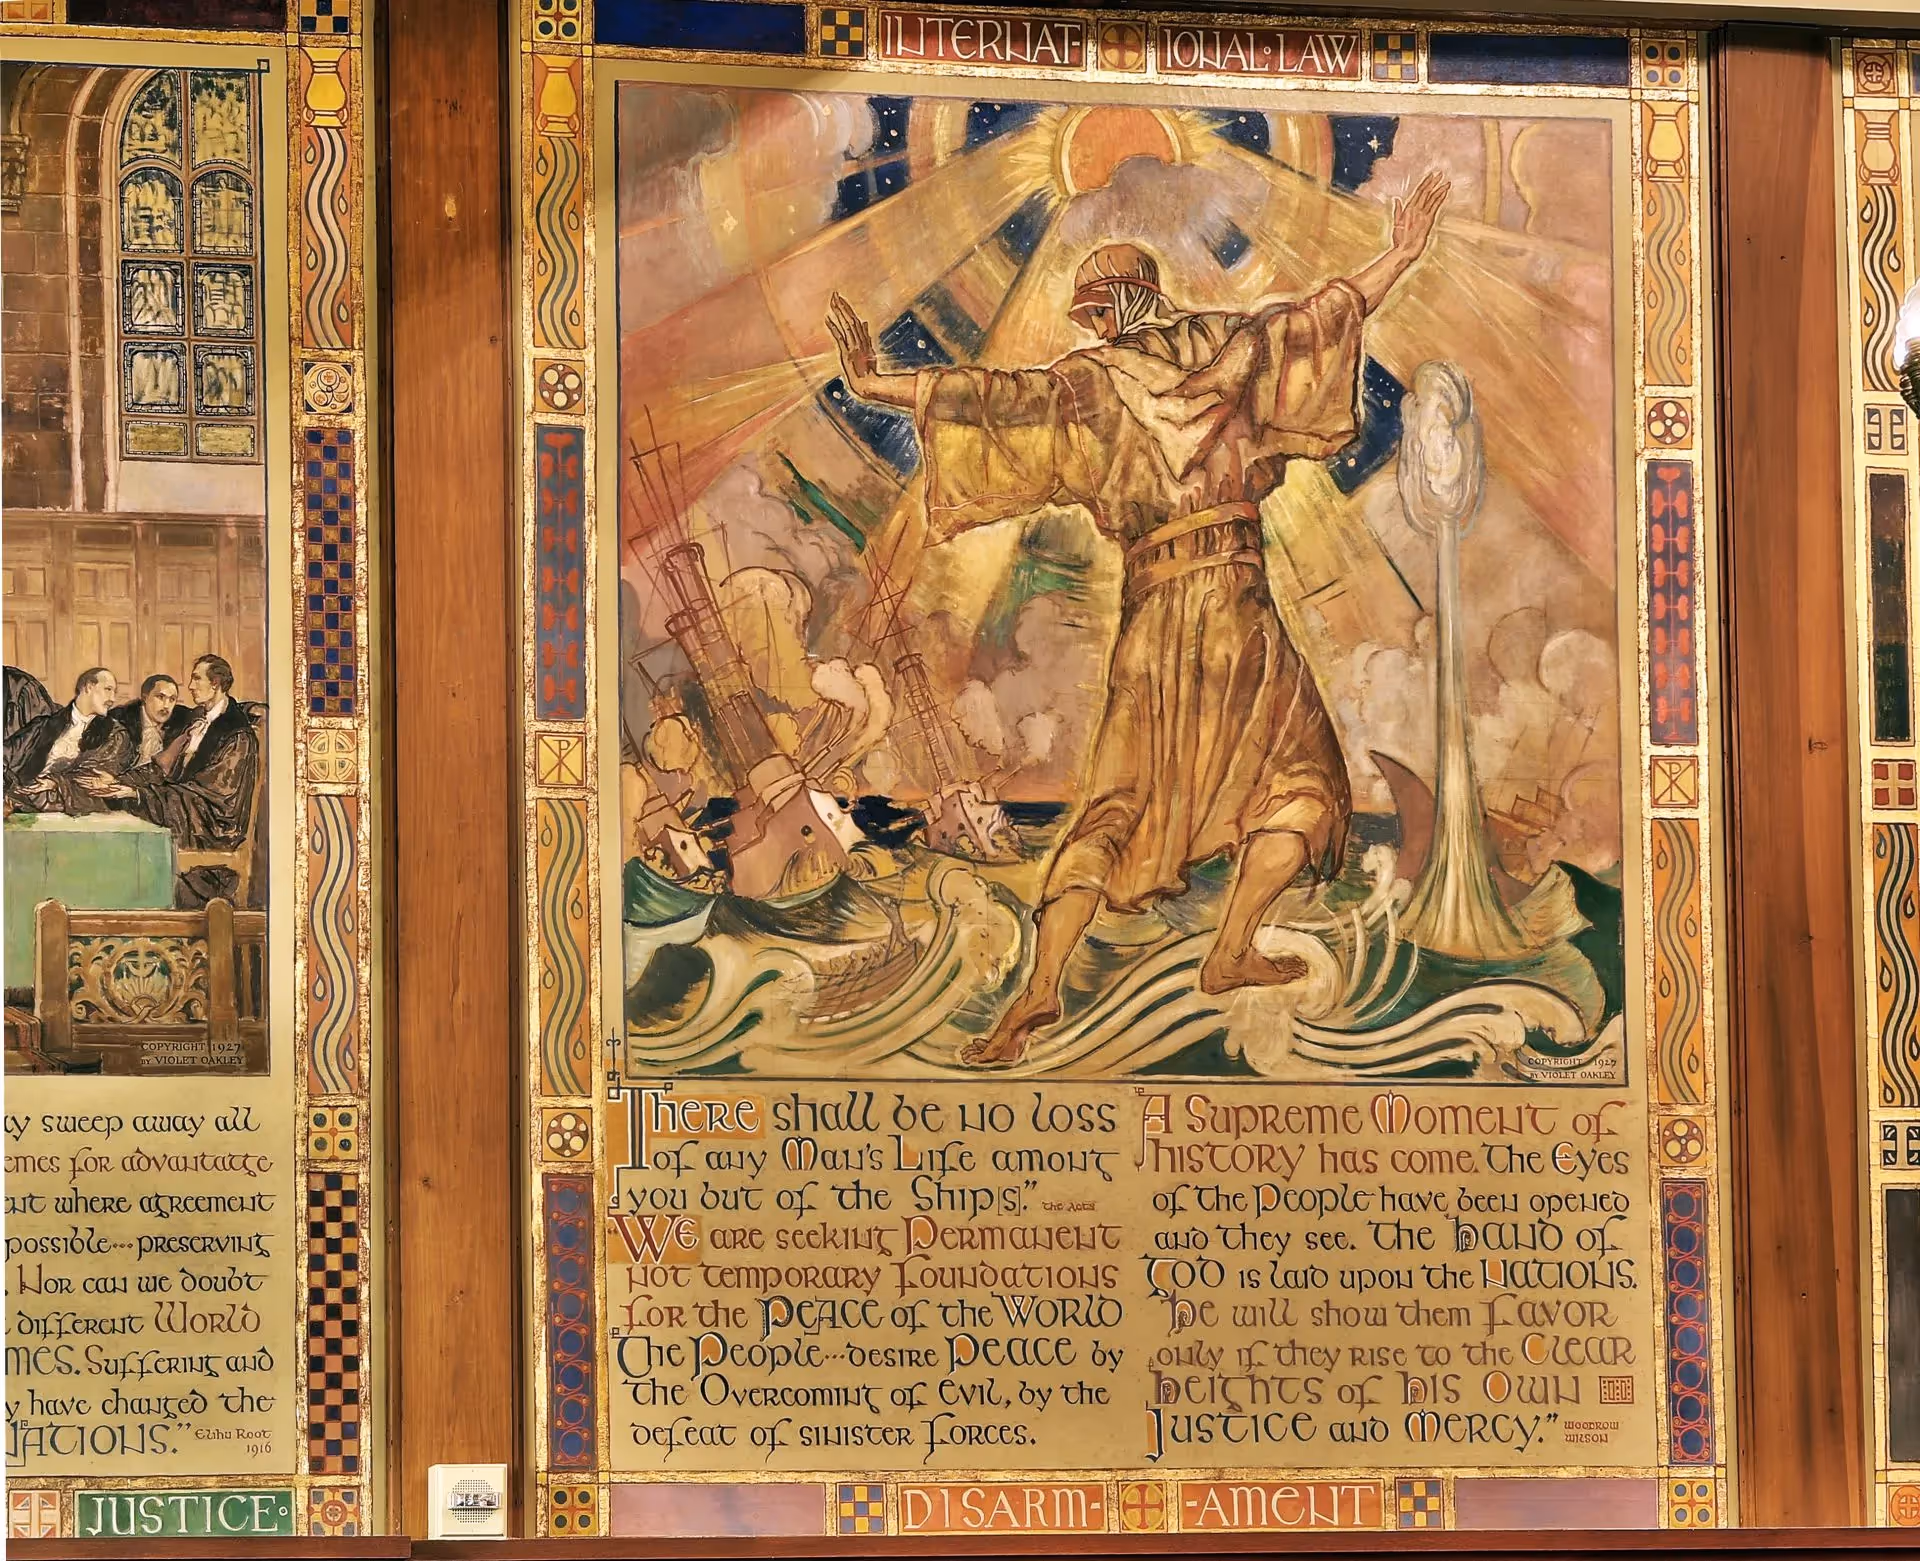 COPYRIGHT 1927
BY VIOLET OAKLEY
sweep away all
for advantage
where agreement
possible...preserving
Nor can we doubt
different World
Suffering and
have changed the
Nations."
Elihu Root
1916
JUSTICE
INTERNAT-
IONAL LAW
COPYRIGHT 1927
BY VIOLET OAKLEY
There shall be no loss
of any Man's Life among
you but of the Ship[s]." The Acts
"We are seeking Permanent
not temporary Foundations
for the Peace of the World
The People...desire Peace by
the Overcoming of Evil, by the
defeat of sinister Forces.
A Supreme Moment of
history has come. The Eyes
of the People have been opened
and they see. The Hand of
God is laid upon the Nations.
He will show them Favor
only if they rise to the Clear
Heights of His Own
Justice and Mercy."
Woodrow
Wilson
DISARM-
-AMENT